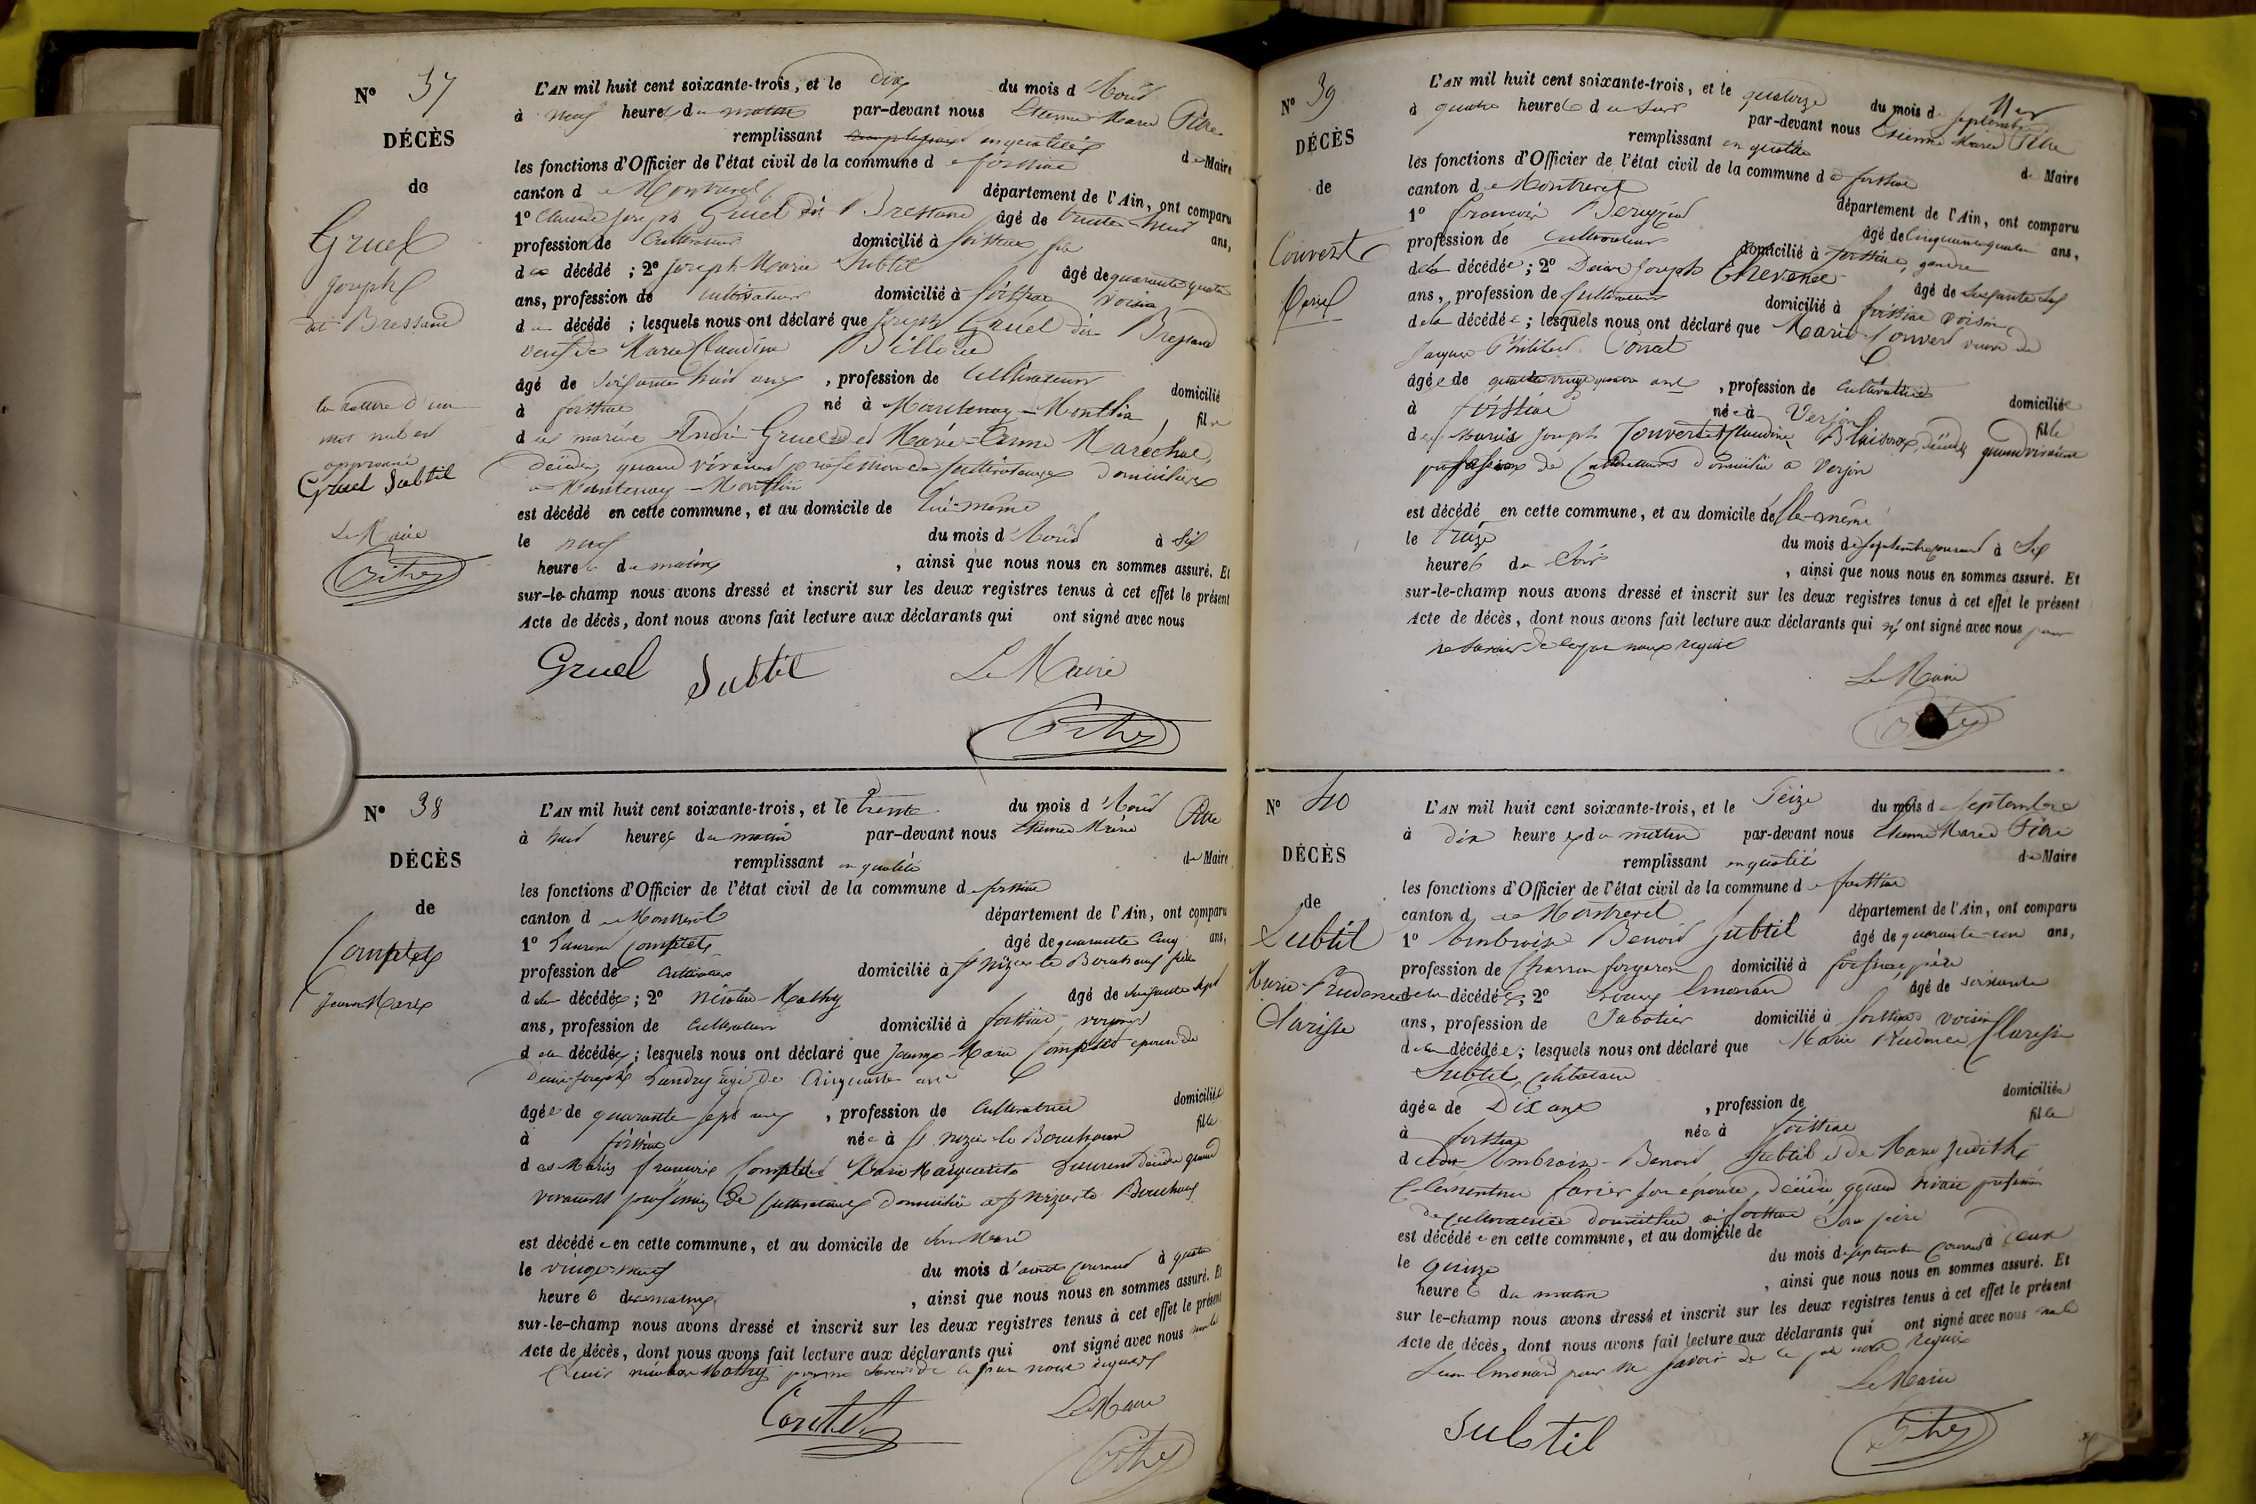 N° 37
DÉCÈS
de
Gruel
Joseph
dit Bressand
la rature d'un
mot nul est
approuvé
Gruel Subtil
Le Maire
Pitre
L'AN mil huit cent soixante-trois, et le dix du mois d'Août
à neuf heures du matin par-devant nous Etienne Marie Pitre
remplissant en qualité de Maire
les fonctions d'Officier de l'état civil de la commune de foissiat
canton de Montrevel département de l'Ain, ont comparu
1° Claude Joseph Gruel dit Bressand âgé de trente neuf ans,
profession de Cultivateur domicilié à foissiat fils
du décédé ; 2° Joseph Marie Subtil âgé de quarante quatre
ans, profession de cultivateur domicilié à foissiat voisin
du décédé ; lesquels nous ont déclaré que Joseph Gruel dit Bressand
veuf de Marie Claudine
âgé de soixante huit ans, profession de Cultivateur domicilié
à foissiat né à Mantenay-Montlin fils
des mariés André Gruel et Marie-Anne Maréchal
décédés, quand vivaient profession de cultivateurs domiciliés
à Mantenay-Montlin
est décédé en cette commune, et au domicile de lui-même
le neuf du mois d'Août à six
heures du matin, ainsi que nous nous en sommes assuré. Et
sur-le-champ nous avons dressé et inscrit sur les deux registres tenus à cet effet le présent
Acte de décès, dont nous avons fait lecture aux déclarants qui ont signé avec nous
Gruel Subtil Le Maire
Pitre
N° 38
DÉCÈS
de
Comptet
Jeanne Marie
L'AN mil huit cent soixante-trois, et le trente du mois d'Août
à huit heures du matin par-devant nous Etienne Marie Pitre
remplissant en qualité de Maire
les fonctions d'Officier de l'état civil de la commune de foissiat
canton de Montrevel département de l'Ain, ont comparu
1° Laurent Comptet âgé de quarante cinq ans,
profession de cultivateur domicilié à St Nizier le Bouchoux frère
de la décédée; 2° Nicolas Mathy âgé de cinquante sept
ans, profession de cultivateur domicilié à foissiat voisin
de la décédée; lesquels nous ont déclaré que Jeanne-Marie Comptet épouse de
Denis-Joseph Landry âgé de Cinquante ans
âgée de quarante sept ans, profession de Cultivatrice domiciliée
à foissiat née à St Nizier le Bouchoux fille
des Mariés François Comptet Marie Marguerite Laurent décédés quand
vivaient profession de cultivateurs domiciliés à St Nizier le Bouchoux
est décédée en cette commune, et au domicile de son Mari
le vingt-neuf du mois d'août courant à quatre
heures du matin, ainsi que nous nous en sommes assuré. Et
sur-le-champ nous avons dressé et inscrit sur les deux registres tenus à cet effet le présent
Acte de décès, dont nous avons fait lecture aux déclarants qui ont signé avec nous
Nicolas Mathy pour ne savoir de ce par nous requis
Comtet Le Maire
Pitre
N° 39
DÉCÈS
de
Convert
Marie
L'AN mil huit cent soixante-trois, et le quatorze du mois de septembre
à quatre heures du soir par-devant nous Etienne Marie Pitre
remplissant en qualité de Maire
les fonctions d'Officier de l'état civil de la commune de foissiat
canton de Montrevel département de l'Ain, ont comparu
1° François âgé de cinquante quatre ans,
profession de cultivateur domicilié à foissiat, gendre
de la décédée; 2° Joseph Chevenet âgé de
ans, profession de Cultivateur domicilié à foissiat voisin
de la décédée; lesquels nous ont déclaré que Marie Convert veuve de
Jacques Philibert
âgée de quatre vingt quatre ans, profession de cultivatrice domiciliée
à foissiat née à Verjon fille
des Mariés Joseph Convert et Claudine décédés quand vivaient
profession de Cultivateurs domiciliés à Verjon
est décédé en cette commune, et au domicile d'elle-même
le treize du mois de septembre courant à six
heures du soir, ainsi que nous nous en sommes assuré. Et
sur-le-champ nous avons dressé et inscrit sur les deux registres tenus à cet effet le présent
Acte de décès, dont nous avons fait lecture aux déclarants qui n'ont signé avec nous pour
ne savoir de ce par nous requis
Le Maire
N° 40
DÉCÈS
de
Subtil
Marie-Prudence
Clarisse
L'AN mil huit cent soixante-trois, et le seize du mois de Septembre
à dix heures du matin par-devant nous Etienne Marie Pitre
remplissant en qualité de Maire
les fonctions d'Officier de l'état civil de la commune de foissiat
canton de Montrevel département de l'Ain, ont comparu
1° Ambroise Benoit Subtil âgé de quarante-un ans,
profession de Charron forgeron domicilié à foissiat, père
de la décédée; 2° Emonard âgé de soixante
ans, profession de Sabotier domicilié à foissiat voisin
de la décédée; lesquels nous ont déclaré que Marie Prudence Clarisse
Subtil, célibataire
âgée de Dix ans, profession de domiciliée
à foissiat née à foissiat fille
de Ambroise-Benoit Subtil et de Marie Judith
Clémentine son épouse, décédée quand vivait profession
de cultivatrice domiciliée à foissiat
est décédée en cette commune, et au domicile de son père
le quinze du mois de septembre courant à deux
heures du matin, ainsi que nous nous en sommes assuré. Et
sur le-champ nous avons dressé et inscrit sur les deux registres tenus à cet effet le présent
Acte de décès, dont nous avons fait lecture aux déclarants qui ont signé avec nous
Emonard pour ne savoir de ce par nous requis
Le Maire
Subtil Pitre